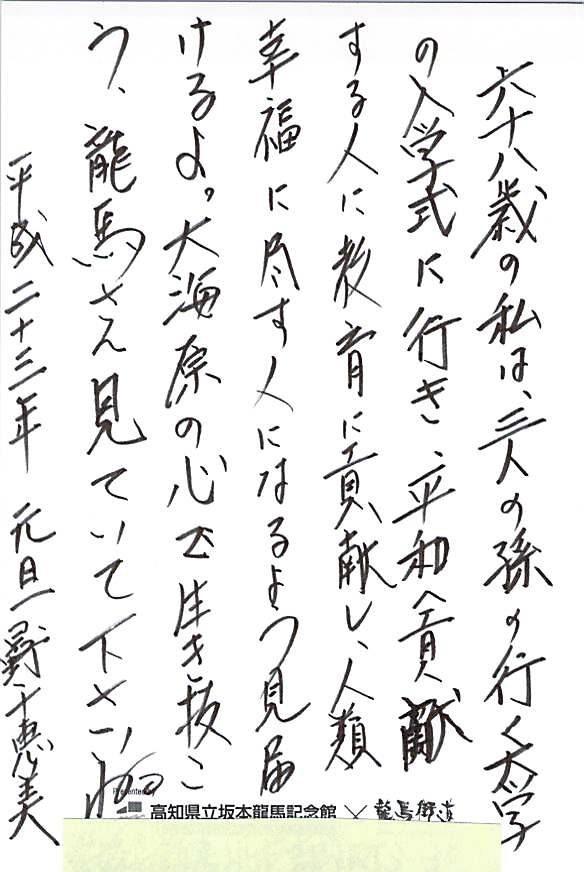 六十八歳の私は、三人の孫の行く大学
の入学式に行き、平和へ貢献
する人に教育に貢献し、人類
幸福に尽す人になるよう見届
けるよ。大海原の心で生き抜こ
う、龍馬さん見ていて下さいね
平成二十三年 元旦 野十恵美
Presented by
高知県立坂本龍馬記念館 × 龍馬街道